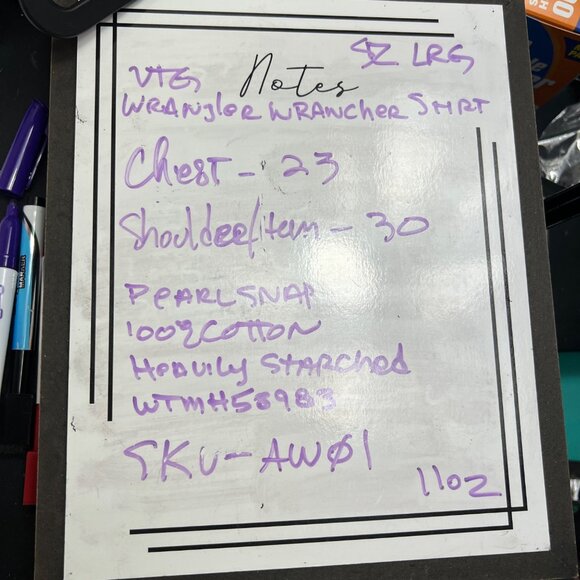 SZ LRG
VTG Notes
WRANgleR WRANCHER SHIRT
Chest - 23
Shoulder/Hem - 30
PEARL SNAP
100% COTTON
HEAVILY STARCHED
WTMH58983
SKU - AWØ1
11oz